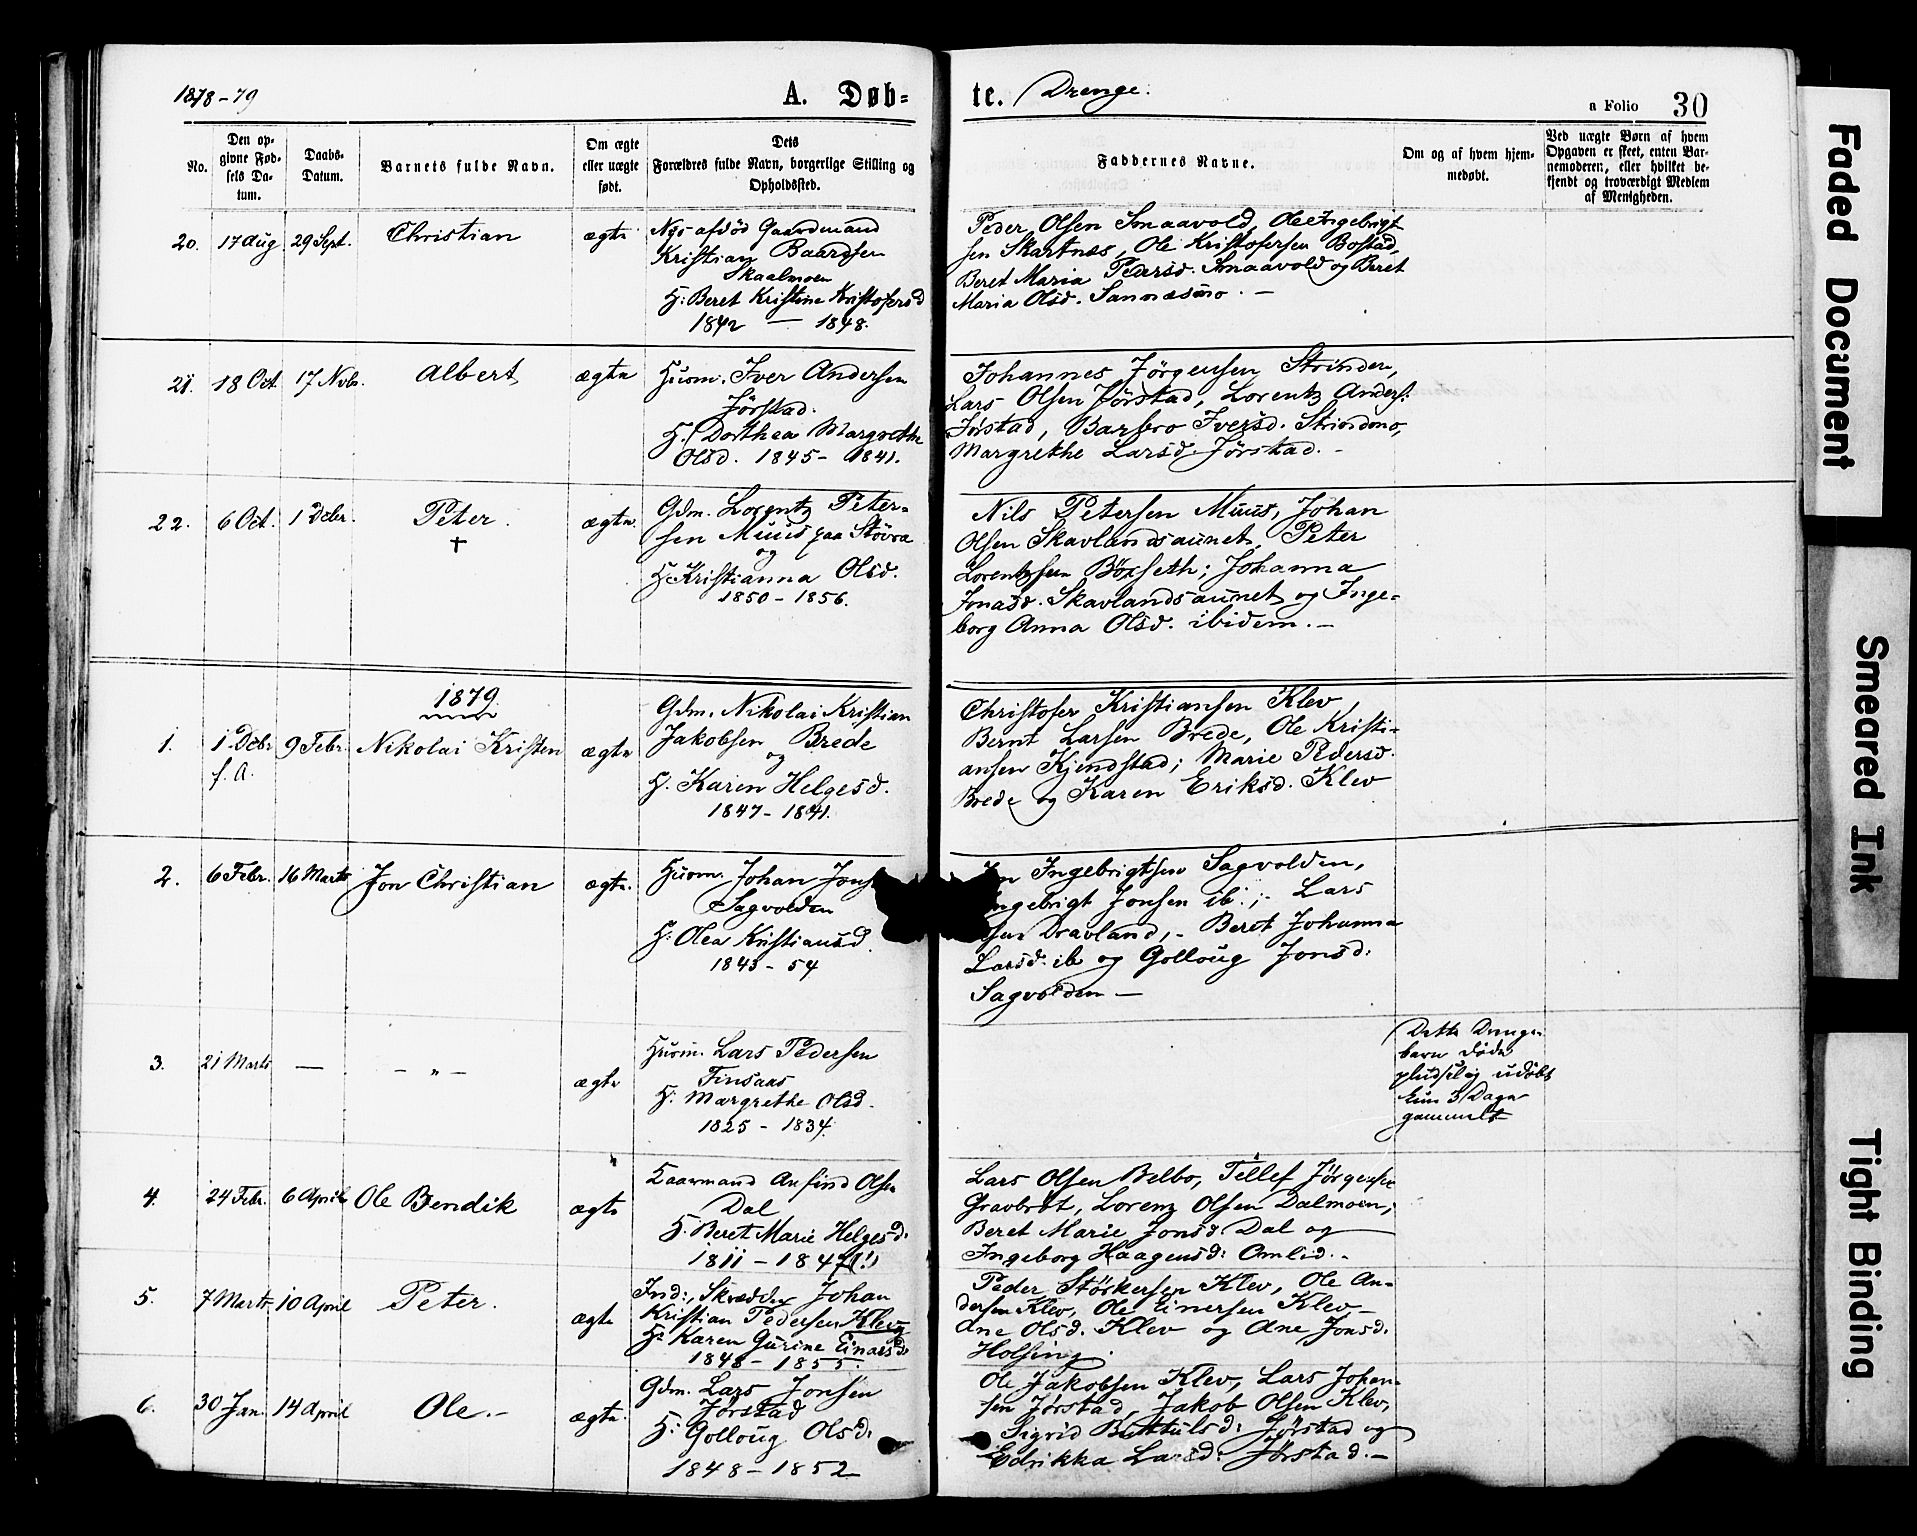 1878-79
A. Døb=
te. Drenge.
a Folio 30
No.
Den op-
givne Fød-
sels Da-
tum.
Daabs-
Datum.
Barnets fulde Navn.
Om ægte
eller uægte
født.
Dets
Forældres fulde Navn, borgerlige Stilling og
Opholdssted.
Faddernes Navne.
Om og af hvem hjem-
medøbt.
Ved uægte Børn af hvem
Opgaven er skeet, enten Bar-
nemoderen, eller hvilket be-
kjendt og troværdigt Medlem
af Menigheden.
20. 17 Aug 29 Sept. Christian ægte
Nys afdød Gaardmand
Kristian Baardsen
Skaalmoen
H: Beret Kristine Kristofersd
1842 — 1848.
Peder Olsen Smaavold, Ole Ingebrigt
sen Skartnes, Ole Kristofersen Bostad,
Beret Maria Pedersd. Smaavold og Beret
Maria Olsd. Sannæsmo. —
21. 18 Oct. 17 Nvbr. Albert ægte
Huusm. Iver Andersen
Jørstad.
H. Dorthea Margrethe
Olsd. 1845 - 1841.
Johannes Jørgensen Strinden,
Lars Olsen Jørstad, Lorentz Anders:
Jørstad, Barbro Iversd. Strindmo,
Margrethe Larsd. Jørstad. -
22. 6 Oct. 1 Debr. Peter. ægte.
†
Gdm. Lorentz Peter=
sen Muus paa Støvra
og
H. Kristianna Olsd.
1850 - 1856.
Nils Petersen Muus, Johan
Olsen Skavlandsaunet, Peter
Lorentzsen Bøxseth; Johanna
Jonasd. Skavlandsaunet og Inge=
borg Anna Olsd. ibidem. -
1879.
1. 1 Debr 9 Febr. Nikolai Kristen ægte
f. A.
Gdm. Nikolai Kristian
Jakobsen Brede
og
H. Karen Helgesd.
1847 - 1841.
Christofer Kristiansen Klev
Bernt Larsen Brede, Ole Kristi-
ansen Kjendstad; Marie Pedersd.
Brede og Karen Eriksd. Klev
2. 6 Febr. 16 Marts Jon Christian ægte.
Huusm. Johan Jons
Sagvolden
H: Olea Kristiansd.
1843 - 54
Ingebrigtsen Sagvolden,
ngebrigt Jonsen ib.; Lars
sen Dravland, - Beret Johanna
Larsd. ib og Golloug Jonsd:
Sagvolden —
3. 21 Marts — - „ - ægte
Huusm. Lars Pedersen
Finsaas
H: Margrethe Olsd.
1825 - 1834.
Dette Drenge-
barn døde
pludselig udøbt
kun 3 Dage
gammelt
4. 24 Febr. 6 April Ole Bendik ægte
Kaarmand Arfind Olsen
Dal
H. Beret Marie Helgesd:
1811 - 1847(!)
Lars Olsen Belbo, Tellef Jørgensen
Gravbrøt, Lorenz Olsen Dalmoen,
Beret Marie Jonsd. Dal og
Ingeborg Haagensd: Omlid. -
5. 7 Marts 10 April Peter. ægte
Ind:, Skrædder Johan
Kristian Pedersen Klev
H: Karen Gurine Einarsd:
1848 - 1855.
Peder Størkersen Klev, Ole An-
dersen Klev, Ole Einersen Klev -
Ane Olsd. Klev og Ane Jonsd.
Holsing.
6. 30 Jan. 14 April Ole. - ægte.
Gdm. Lars Jonsen
Jørstad
H: Golloug Olsd:
1848 - 1852
Ole Jakobsen Klev, Lars Johan-
sen Jørstad, Jakob Olsen Klev,
Sigrid Buttulsd: Jørstad og
Edrikka Larsd: Jørstad. -
Faded Document
Smeared Ink
Tight Binding